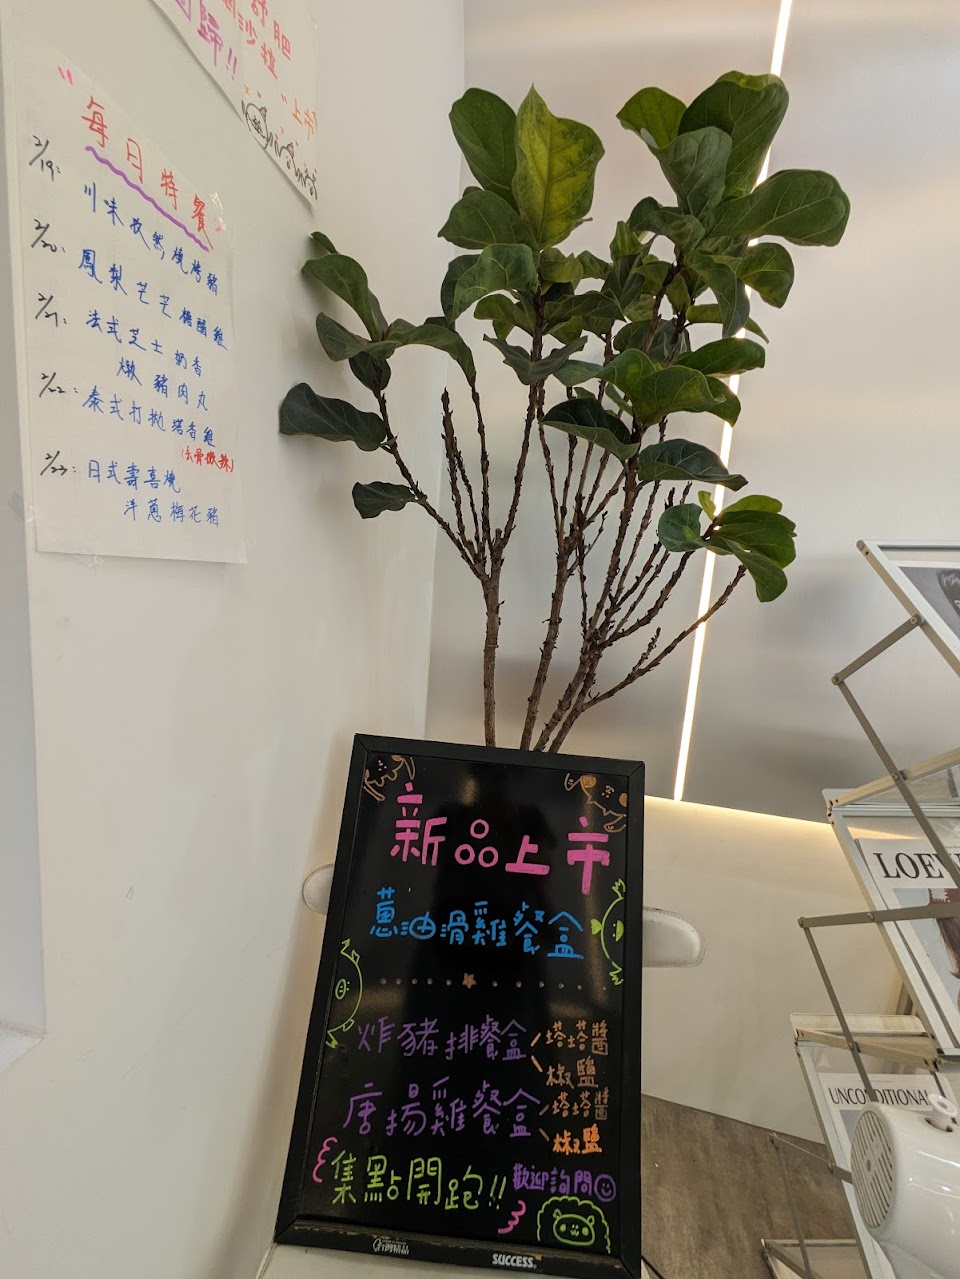 歸!!
舒肥
沙拉
"上市
"每日特餐"
2/19: 川味孜然燒烤豬
2/20: 鳳梨芒芒糖醋雞
2/21: 法式芝士奶香
燉豬肉丸
2/22: 泰式打拋塔香雞
(去骨微辣)
2/23: 日式壽喜燒
洋蔥梅花豬
新品上市
蔥油滑雞餐盒
炸豬排餐盒 塔塔醬
椒鹽
唐揚雞餐盒 塔塔醬
椒鹽
集點開跑!! 歡迎詢問
SUCCESS
LOEW
UNCONDITIONAL